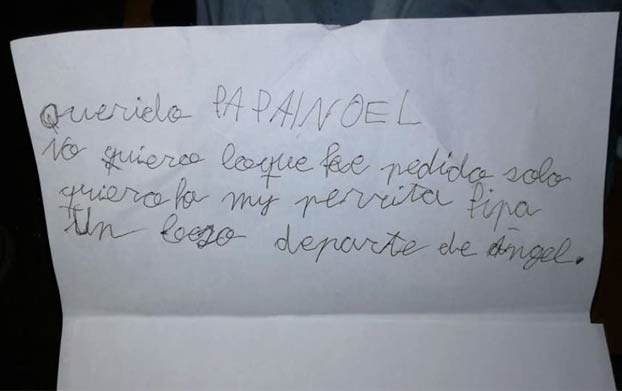 Querido PAPAINOEL
No quiero loque he pedido solo
quiero ha my perrita pipa
Un beso departe de Ángel.